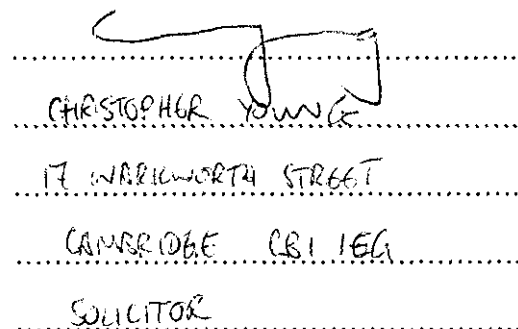 CHRISTOPHER YOUNGE
17 WARKWORTH STREET
CAMBRIDGE CB1 1EG
SOLICITOR